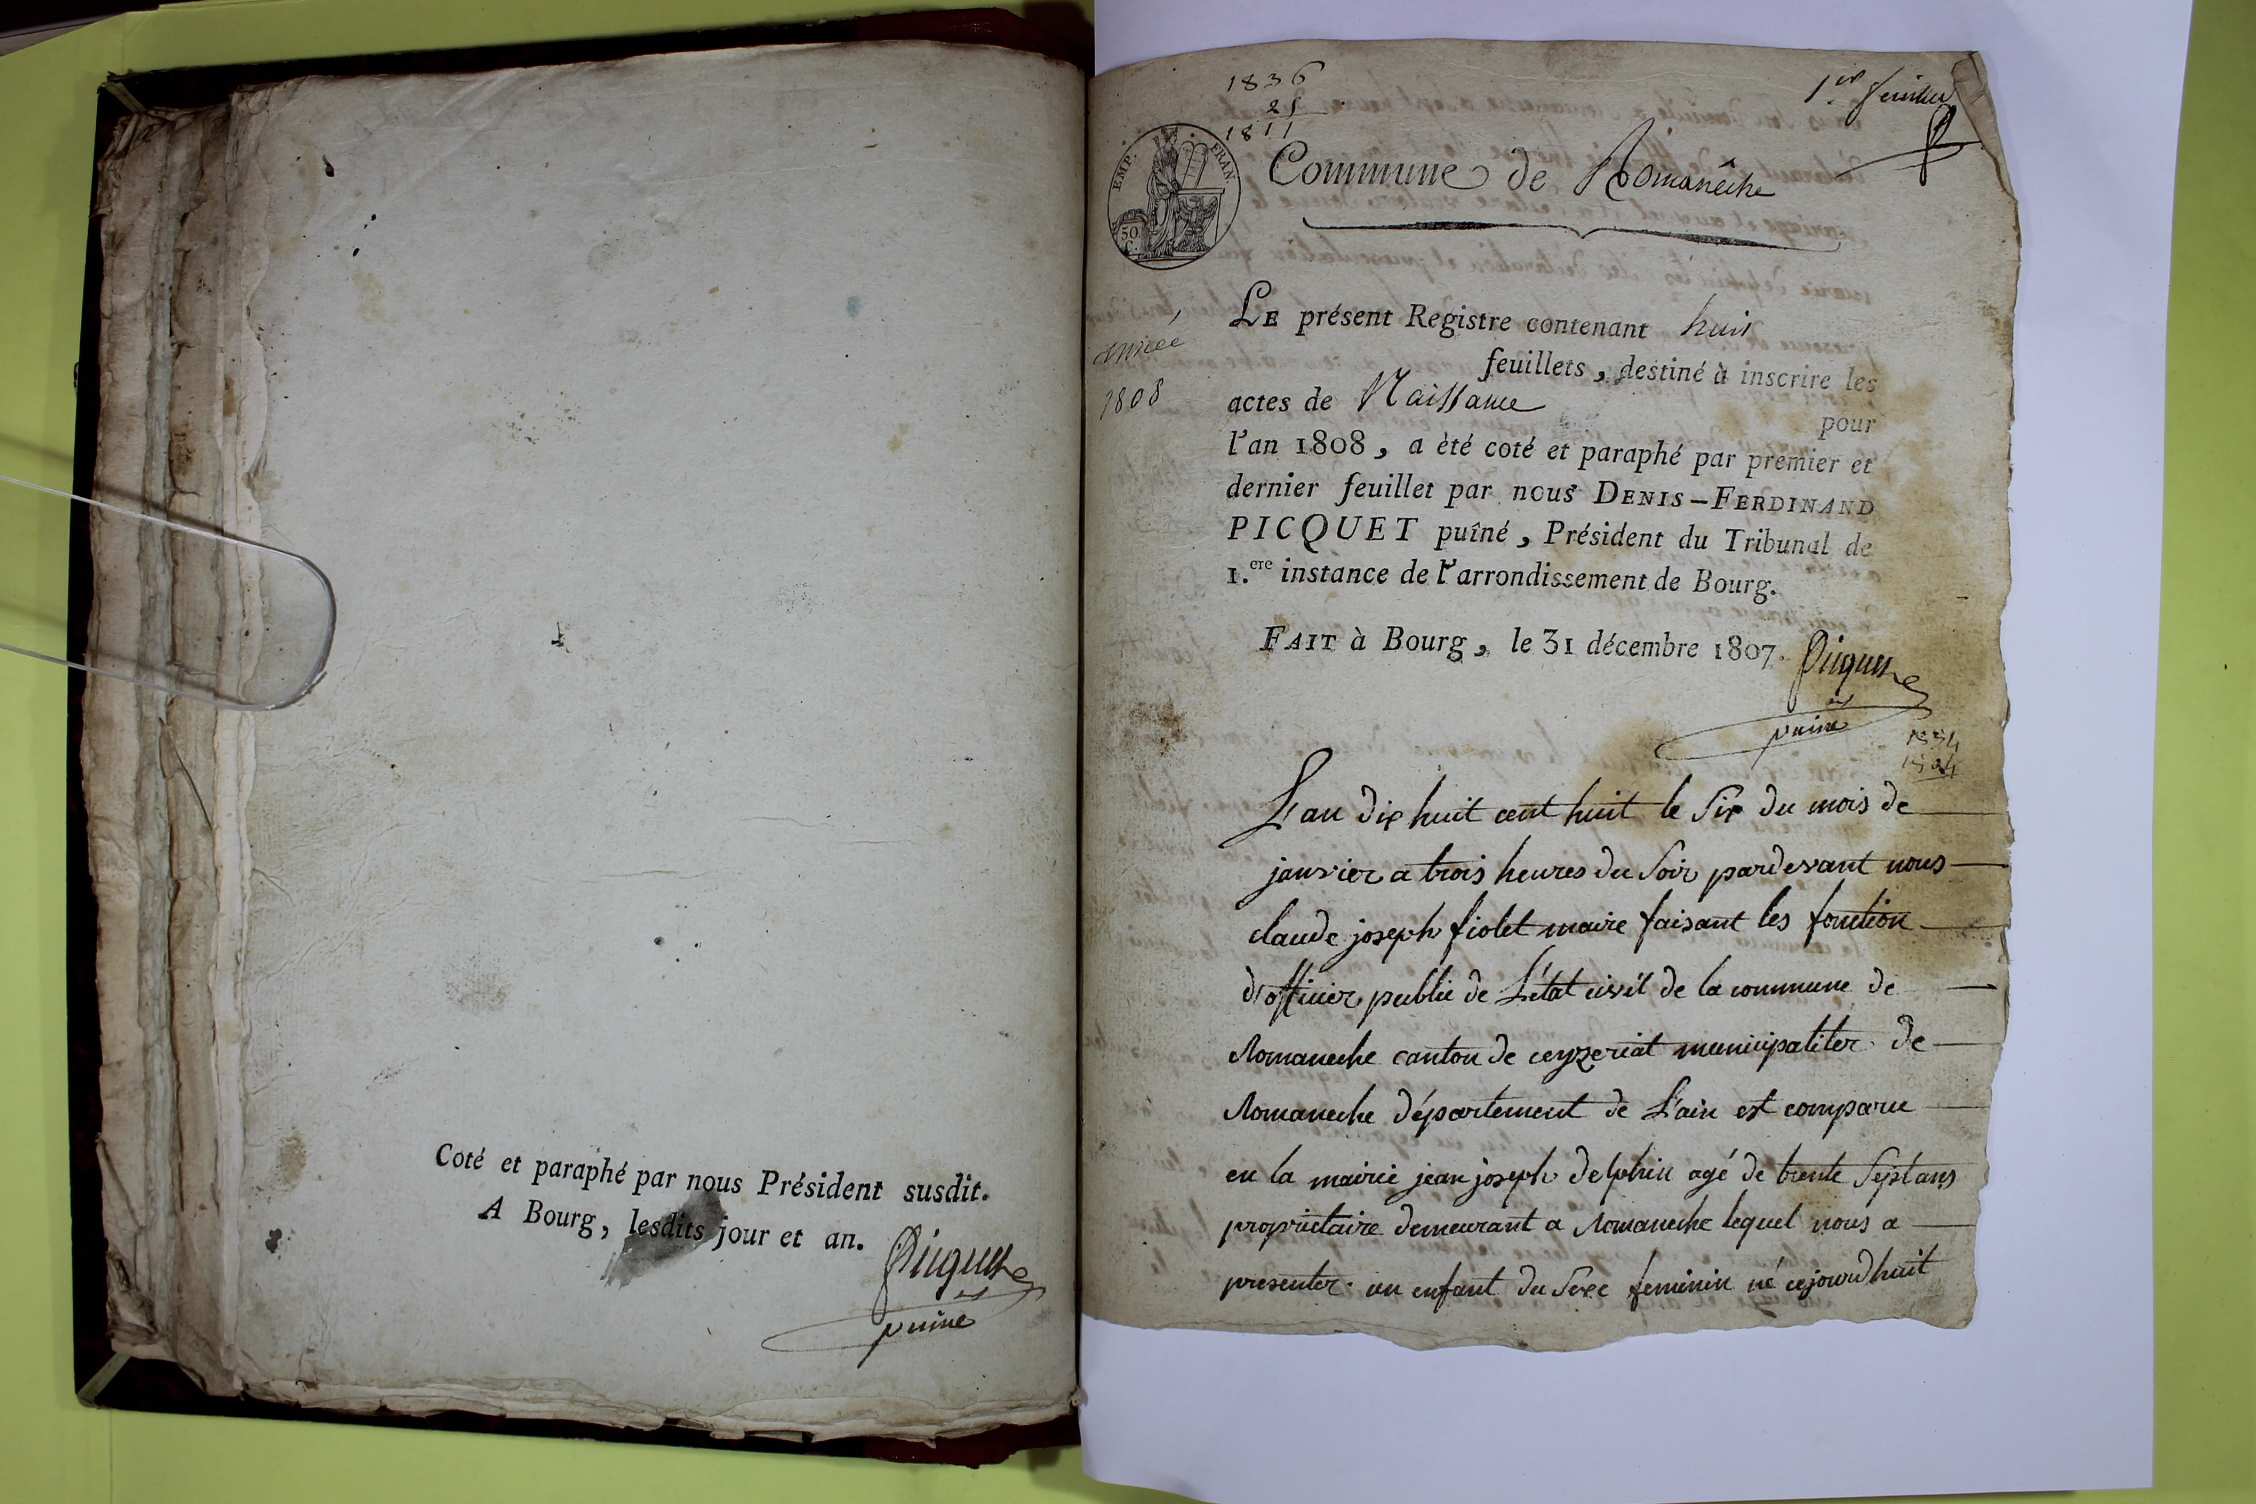 Coté et paraphé par nous Président susdit.
A Bourg, lesdits jour et an.
Picquet
puiné
1836
25
1811
1er feuillet
EMP. FRAN
50
C.
Commune de Romanêche
année
1808
LE présent Registre contenant huit
feuillets, destiné à inscrire les
actes de Naissance
pour
l'an 1808, a èté coté et paraphé par premier et
dernier feuillet par nous DENIS-FERDINAND
PICQUET puîné, Président du Tribunal de
1.ere instance de l'arrondissement de Bourg.
FAIT à Bourg, le 31 décembre 1807.
Picquet
puiné
L'an dix huit cent huit le six du mois de
janvier a trois heures du soir pardevant nous
claude joseph fiolet maire faisant les fonction
d'officier public de L'état civil de la commune de
Romaneche canton de ceyzeriat municipaliter de
Romaneche département de L'ain est comparu
en la mairie jean joseph delphin agé de trente sept ans
proprietaire demeurant a Romaneche lequel nous a
presenter un enfant du sexe feminin né cejourdhuit